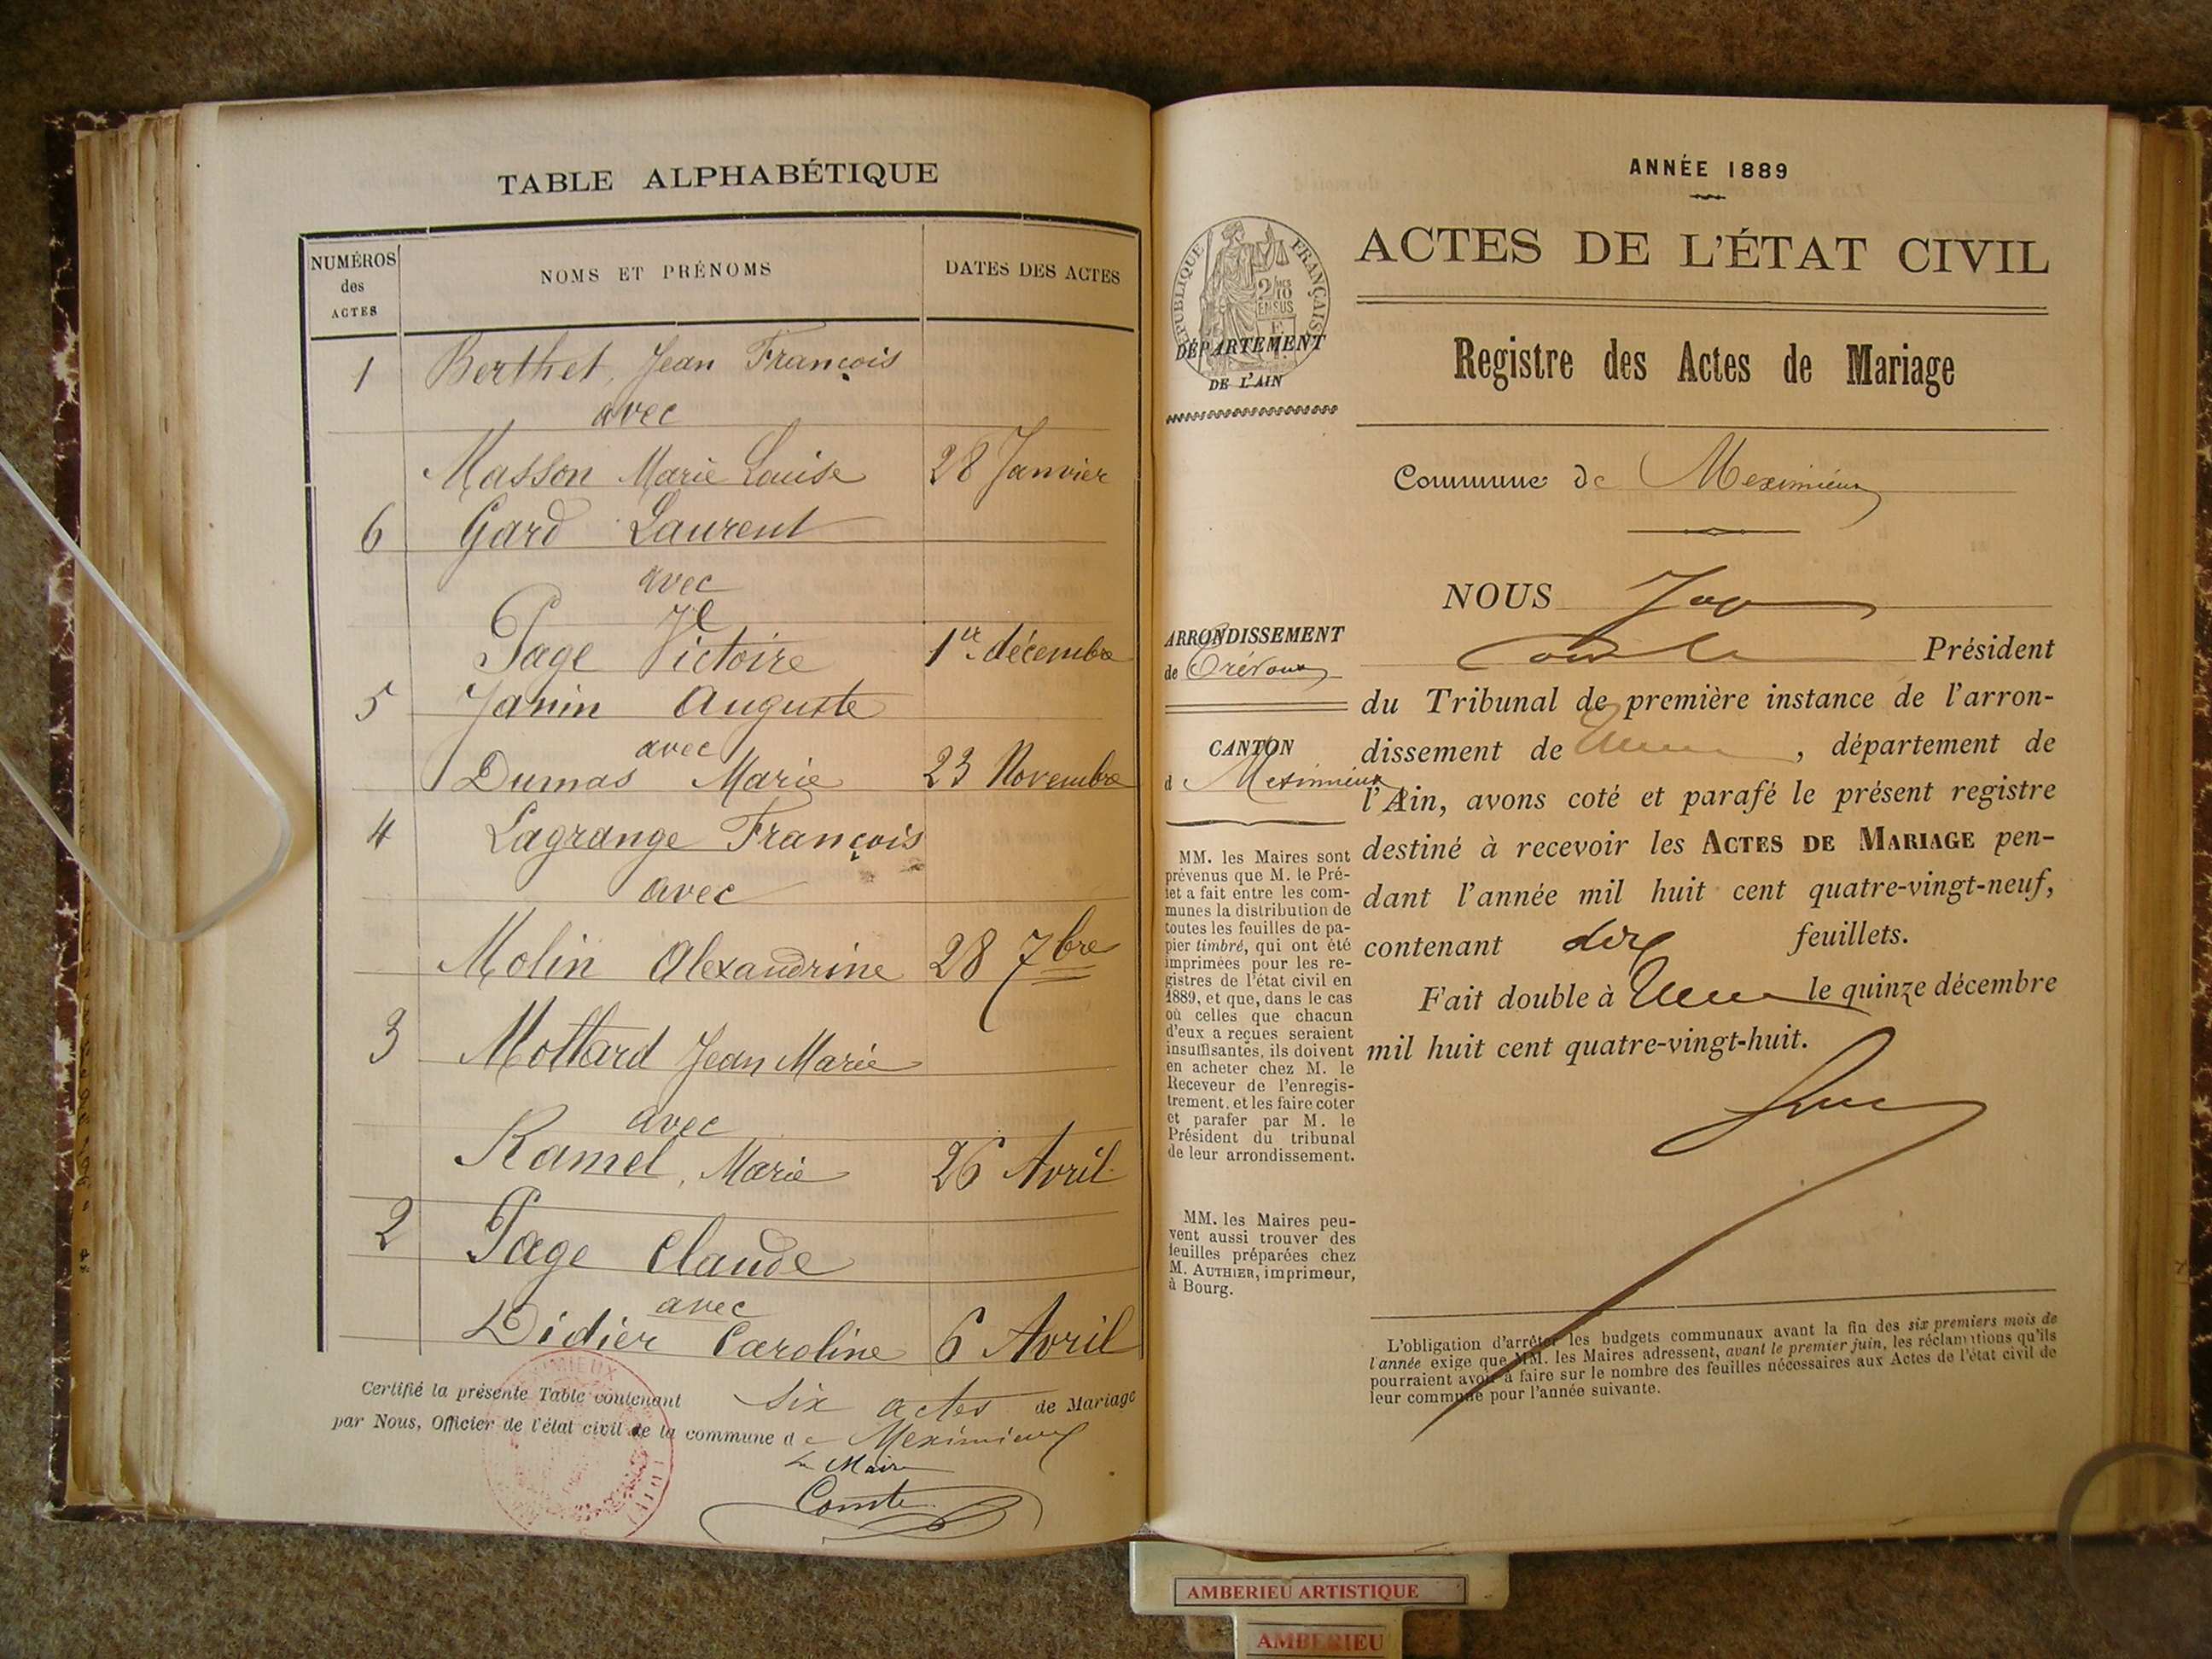 TABLE ALPHABÉTIQUE
NUMÉROS
des
ACTES
NOMS ET PRÉNOMS
DATES DES ACTES
1 Berthet, Jean François
avec
Masson Marie Louise 28 Janvier
6 Gard Laurent
avec
Page Victoire 1er décembre
5 Janin Auguste
avec
Dumas Marie 23 Novembre
4 Lagrange François
avec
Molin Alexandrine 28 7bre
3 Mottard Jean Marie
avec
Ramel, Marie 26 Avril
2 Page Claude
avec
Didier Caroline 6 Avril
Certifié la présente Table contenant six actes de Mariage
par Nous, Officier de l'état civil de la commune de Meximieux
Le Maire
Comte
ANNÉE 1889
ACTES DE L'ÉTAT CIVIL
RÉPUBLIQUE FRANÇAISE
2/10 MES
EN SUS
DÉPARTEMENT
DE L'AIN
Registre des Actes de Mariage
Commune de Meximieux
ARRONDISSEMENT
de Trévoux
CANTON
de Meximieux
MM. les Maires sont
prévenus que M. le Pré-
fet a fait entre les com-
munes la distribution de
toutes les feuilles de pa-
pier timbré, qui ont été
imprimées pour les re-
gistres de l'état civil en
1889, et que, dans le cas
où celles que chacun
d'eux a reçues seraient
insuffisantes, ils doivent
en acheter chez M. le
Receveur de l'enregis-
trement, et les faire coter
et parafer par M. le
Président du tribunal
de leur arrondissement.
MM. les Maires peu-
vent aussi trouver des
feuilles préparées chez
M. AUTHIER, imprimeur,
à Bourg.
NOUS
Président
du Tribunal de première instance de l'arron-
dissement de , département de
l'Ain, avons coté et parafé le présent registre
destiné à recevoir les ACTES DE MARIAGE pen-
dant l'année mil huit cent quatre-vingt-neuf,
contenant dix feuillets.
Fait double à le quinze décembre
mil huit cent quatre-vingt-huit.
L'obligation d'arrêter les budgets communaux avant la fin des six premiers mois de
l'année exige que MM. les Maires adressent, avant le premier juin, les réclamations qu'ils
pourraient avoir à faire sur le nombre des feuilles nécessaires aux Actes de l'état civil de
leur commune pour l'année suivante.
AMBERIEU ARTISTIQUE
AMBERIEU